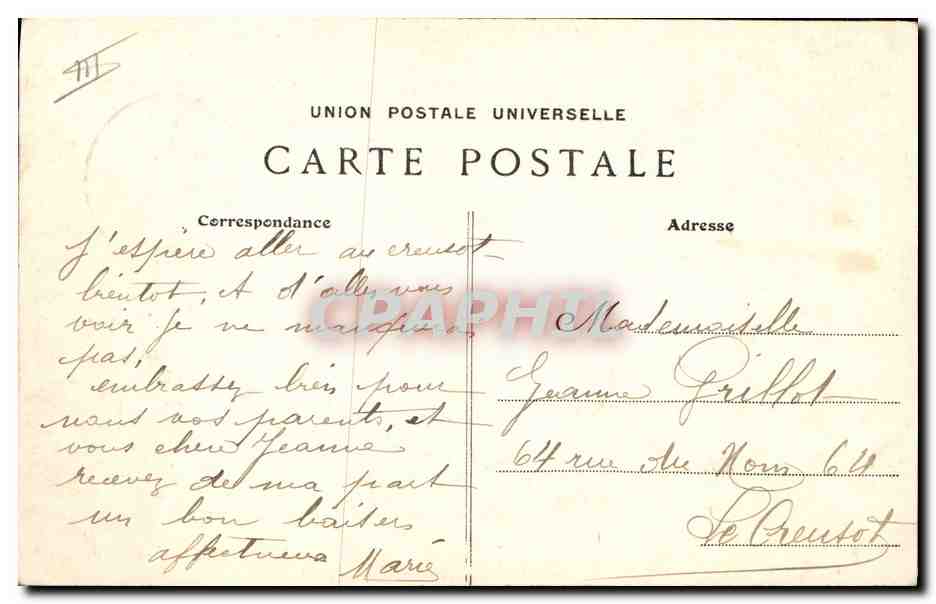 III
UNION POSTALE UNIVERSELLE
CARTE POSTALE
Correspondance
Adresse
J'espère aller au creusot
bientot, et d'aller vous
voir je ne manquerai
pas,
embrassez bien pour
nous vos parents, et
vous chere Jeanne
recevez de ma part
un bon baisers
affectueux Marie
CPAPHIL
Mademoiselle
Jeanne Grillot
64 rue du 64
Le Creusot